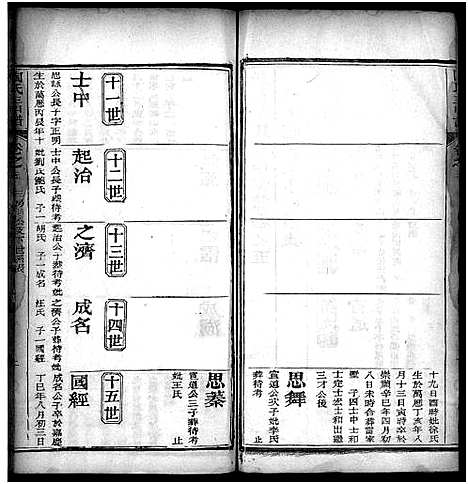 十九日酉時妣徐氏
生於萬曆丁亥年八
月十三日寅時卒於
崇禎辛巳年四月初
八日未時合葬雷家
壟子四士中士和
士定士宏士和出繼
三才公後
思舞
宣道公次子妣李氏
葬待考
止
思蓁
宣道公三子葬待考
妣王氏
止
十一世
士中
思詠公長子字正明
生於萬曆丙辰年十
十二世
起治
士中公長子葬待考
妣劉氏鮑氏 子一
十三世
之濟
起治公子葬待考妣
胡氏 子一成名
十四世
成名
之濟公子葬待考妣
汪氏 子一國經
十五世
國經
成名公子卒於嘉慶
丁巳年八月初三日